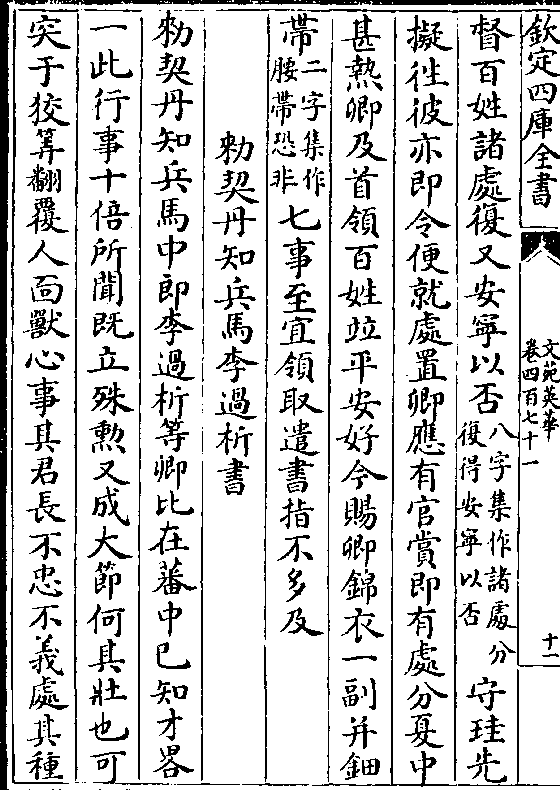 欽定四庫全書
文苑英華
卷四百七十一
十一
督百姓諸處復又安寧以否八字集作諸處分復得安寧以否守珪先
擬徃彼亦即令便就處置卿應有官賞即有處分夏中
甚熱卿及首領百姓竝平安好今賜卿錦衣一副并鈿
帶二字集作腰帶恐非七事至宜領取遣書指不多及
勅契丹知兵馬李過折書
勅契丹知兵馬中郎李過折等卿比在蕃中已知才畧
一此行事十倍所聞既立殊勲又成大節何其壯也可
突于狡筭翻覆人面獸心事其君長不忠不義處其種